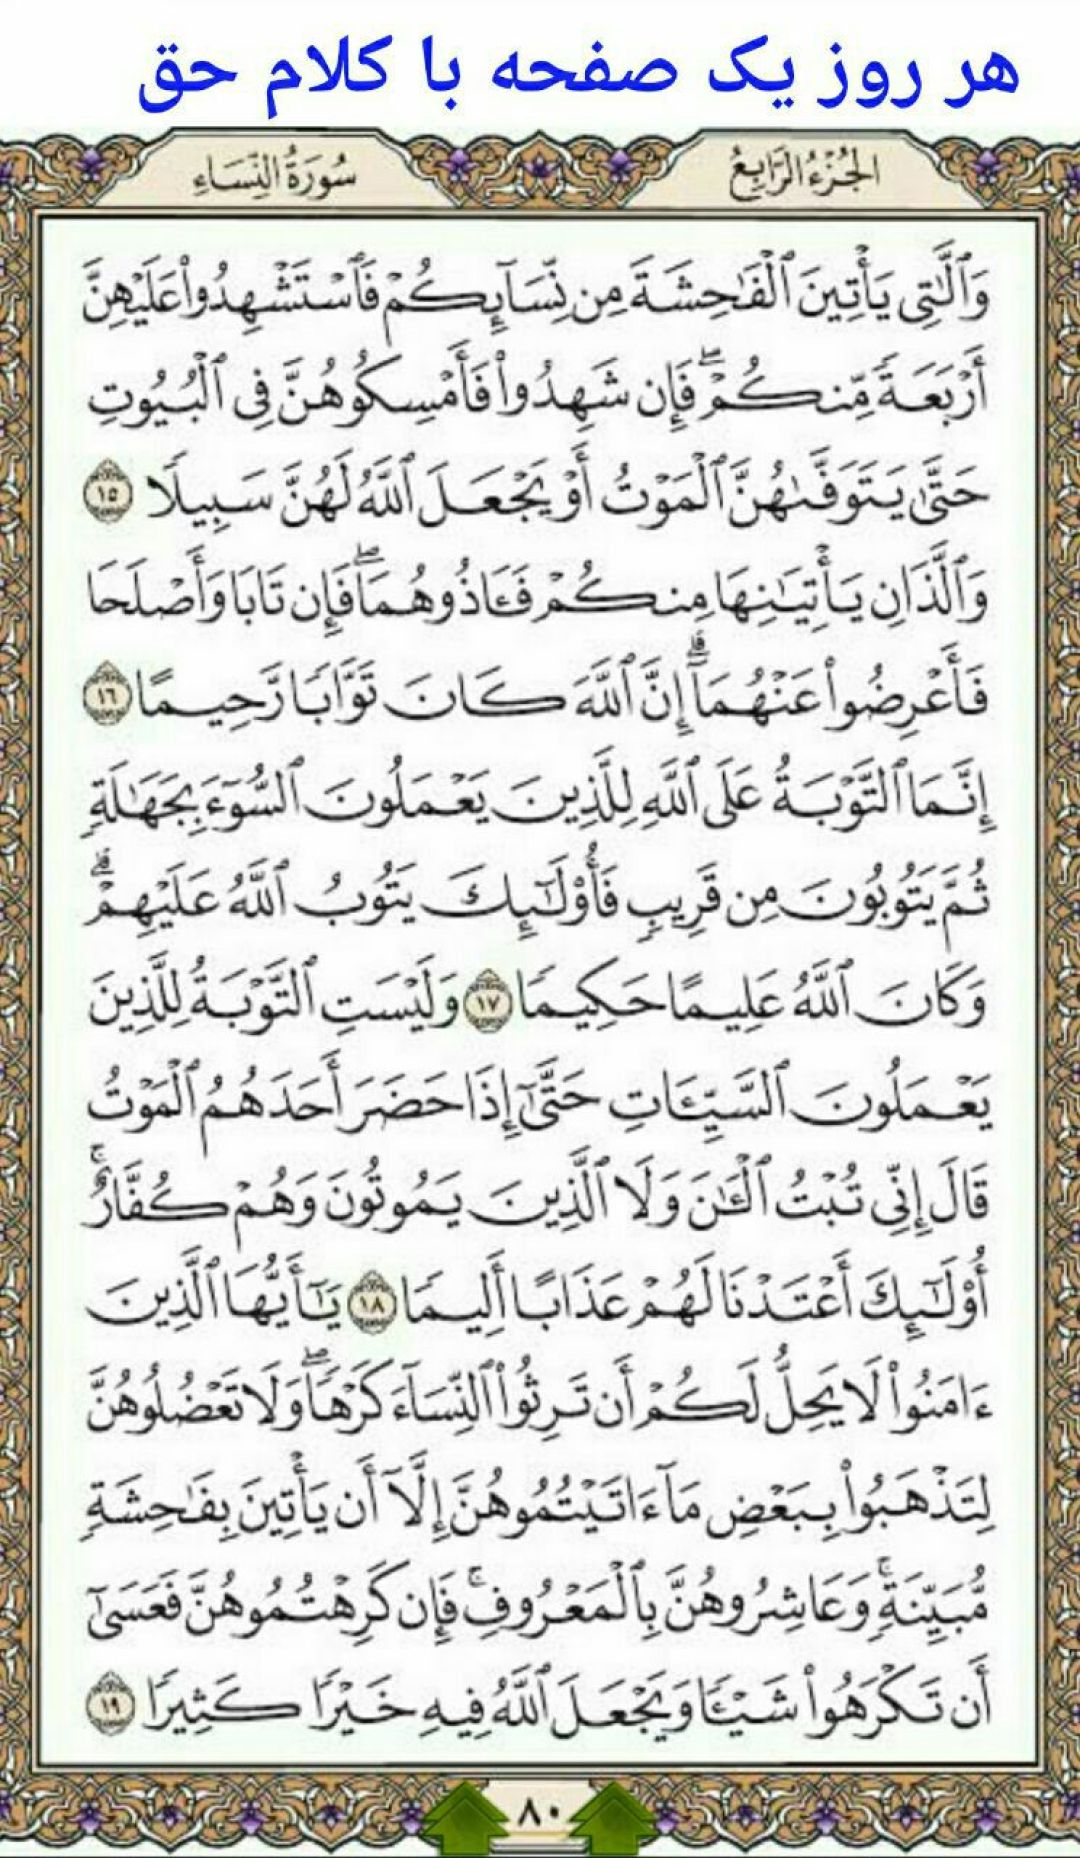 هر روز یک صفحه با کلام حق
الجُزْءُ الرَّابِعُ
سُورَةُ النِّسَاءِ
وَٱلَّٰتِى يَأْتِينَ ٱلْفَٰحِشَةَ مِن نِّسَآئِكُمْ فَٱسْتَشْهِدُوا۟ عَلَيْهِنَّ
أَرْبَعَةً مِّنكُمْ ۖ فَإِن شَهِدُوا۟ فَأَمْسِكُوهُنَّ فِى ٱلْبُيُوتِ
حَتَّىٰ يَتَوَفَّىٰهُنَّ ٱلْمَوْتُ أَوْ يَجْعَلَ ٱللَّهُ لَهُنَّ سَبِيلًا ١٥
وَٱلَّذَانِ يَأْتِيَٰنِهَا مِنكُمْ فَـَٔاذُوهُمَا ۖ فَإِن تَابَا وَأَصْلَحَا
فَأَعْرِضُوا۟ عَنْهُمَآ ۗ إِنَّ ٱللَّهَ كَانَ تَوَّابًا رَّحِيمًا ١٦
إِنَّمَا ٱلتَّوْبَةُ عَلَى ٱللَّهِ لِلَّذِينَ يَعْمَلُونَ ٱلسُّوٓءَ بِجَهَٰلَةٍ
ثُمَّ يَتُوبُونَ مِن قَرِيبٍ فَأُو۟لَٰٓئِكَ يَتُوبُ ٱللَّهُ عَلَيْهِمْ ۗ
وَكَانَ ٱللَّهُ عَلِيمًا حَكِيمًا ١٧ وَلَيْسَتِ ٱلتَّوْبَةُ لِلَّذِينَ
يَعْمَلُونَ ٱلسَّيِّـَٔاتِ حَتَّىٰٓ إِذَا حَضَرَ أَحَدَهُمُ ٱلْمَوْتُ
قَالَ إِنِّى تُبْتُ ٱلْـَٰٔنَ وَلَا ٱلَّذِينَ يَمُوتُونَ وَهُمْ كُفَّارٌ ۚ
أُو۟لَٰٓئِكَ أَعْتَدْنَا لَهُمْ عَذَابًا أَلِيمًا ١٨ يَٰٓأَيُّهَا ٱلَّذِينَ
ءَامَنُوا۟ لَا يَحِلُّ لَكُمْ أَن تَرِثُوا۟ ٱلنِّسَآءَ كَرْهًا ۖ وَلَا تَعْضُلُوهُنَّ
لِتَذْهَبُوا۟ بِبَعْضِ مَآ ءَاتَيْتُمُوهُنَّ إِلَّآ أَن يَأْتِينَ بِفَٰحِشَةٍ
مُّبَيِّنَةٍ ۚ وَعَاشِرُوهُنَّ بِٱلْمَعْرُوفِ ۚ فَإِن كَرِهْتُمُوهُنَّ فَعَسَىٰٓ
أَن تَكْرَهُوا۟ شَيْـًٔا وَيَجْعَلَ ٱللَّهُ فِيهِ خَيْرًا كَثِيرًا ١٩
٨٠